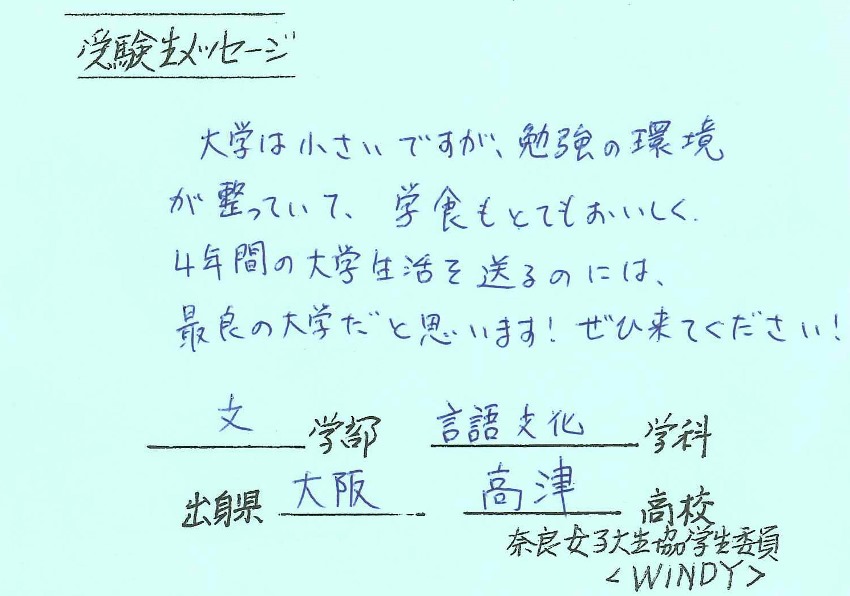 受験生メッセージ
大学は小さいですが、勉強の環境
が整っていて、学食もとてもおいしく、
4年間の大学生活を送るのには、
最良の大学だと思います!ぜひ来てください!
文 学部 言語文化 学科
出身県 大阪 高津 高校
奈良女子大生協学生委員
<WINDY>